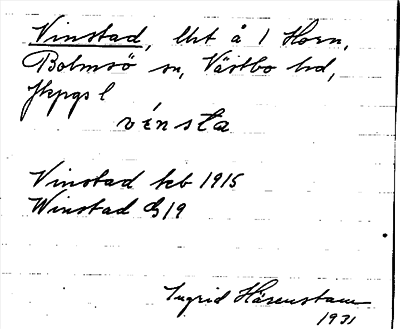 Vinstad, lht å 1 Horn,
Bolmsö sn, Västbo hd,
Jkpgs l
vénsta
Vinstad kb 1915
Winstad G19
Ingrid Härenstam
1931